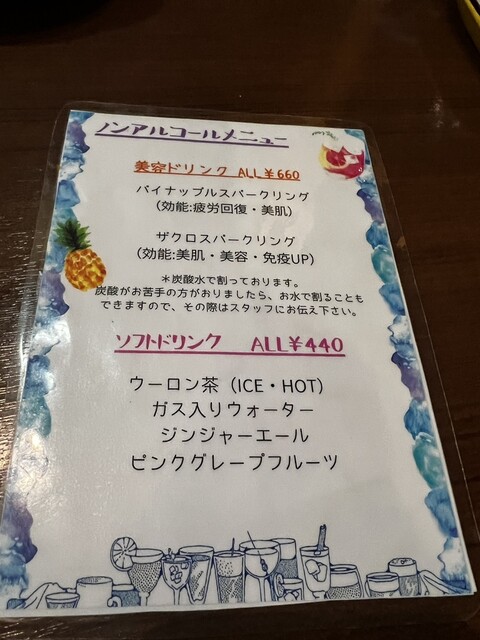 ノンアルコールメニュー
美容ドリンク ALL¥660
パイナップルスパークリング
(効能:疲労回復・美肌)
ザクロスパークリング
(効能:美肌・美容・免疫UP)
*炭酸水で割っております。
炭酸がお苦手の方がおりましたら、お水で割ることも
できますので、その際はスタッフにお伝え下さい。
ソフトドリンク ALL¥440
ウーロン茶(ICE・HOT)
ガス入りウォーター
ジンジャーエール
ピンクグレープフルーツ